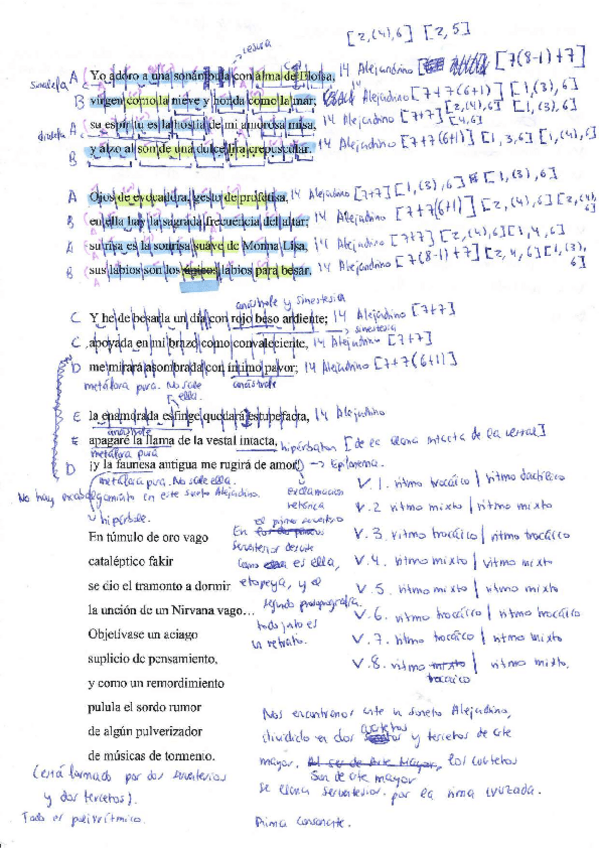 cesura
[2,(4),6] [2,5]
sinalefa A Yo adoro a una sonámbula con alma de Eloísa, 14 Alejandrino [7(8-1)+7]
B virgen como la nieve y honda como la mar; Alejandrino [7+7(6+1)] [1,(3),6]
[2,(4),6] [1,(3),6]
A su espíritu es la hostia de mi amorosa misa, 14 Alejandrino [7+7] [4,6]
B y alzo al són de una dulce lira crepuscular. 14 Alejandrino [7+7(6+1)] [1,3,6] [1,(4),6]
A Ojos de evocadora, gesto de profetisa, 14 Alejandrino [7+7] [1,(3),6] [1,(3),6]
B en ella hay la sagrada frecuencia del altar; 14 Alejandrino [7+7(6+1)] [2,(4),6] [2,(4),6]
A su risa es la sonrisa suave de Monna Lisa, 14 Alejandrino [7+7] [2,(4),6] [1,4,6]
B sus labios son los únicos labios para besar. 14 Alejandrino [7(8-1)+7] [2,4,6] [1,(3),6]
anástrofe y sinestesia
C Y he de besarla un día con rojo beso ardiente; 14 Alejandrino [7+7]
sinestesia
C apoyada en mi brazo como convaleciente, 14 Alejandrino [7+7]
D me mirará asombrada con íntimo pavor; 14 Alejandrino [7+7(6+1)]
metáfora pura. No sale ella. anástrofe
E la enamorada esfinge quedará estupefacta, 14 Alejandrino
anástrofe
E apagaré la llama de la vestal intacta, hipérbaton [de la llama intacta de la vestal]
metáfora pura
D ¡y la faunesa antigua me rugirá de amor! → Epifonema.
metáfora pura. No sale ella. exclamación retórica
No hay encabalgamiento en este soneto Alejandrino.
hipérbole.
V.1. ritmo trocáico / ritmo dactílico
V.2 ritmo mixto / ritmo trocáico
V.3. ritmo trocáico / ritmo trocáico
V.4. ritmo mixto / ritmo mixto
V.5. ritmo mixto / ritmo mixto
V.6. ritmo trocáico / ritmo trocáico
V.7. ritmo trocáico / ritmo mixto
V.8. ritmo trocáico / ritmo mixto.
En el primer serventesio
describe
como es ella,
etopeya, y el
segundo prosopografía.
todo junto es
un retrato.
En túmulo de oro vago
cataléptico fakir
se dio el tramonto a dormir
la unción de un Nirvana vago…
Objetívase un aciago
suplicio de pensamiento,
y como un remordimiento
pulula el sordo rumor
de algún pulverizador
de músicas de tormento.
(está formado por dos serventesios
y dos tercetos).
Todo es polirrítmico.
Nos encontramos ante un soneto Alejandrino,
dividido en dos cuartetos y tercetos de arte
mayor. los cuartetos
Son de arte mayor
se llama serventesios. por la rima cruzada.
Rima consonante.